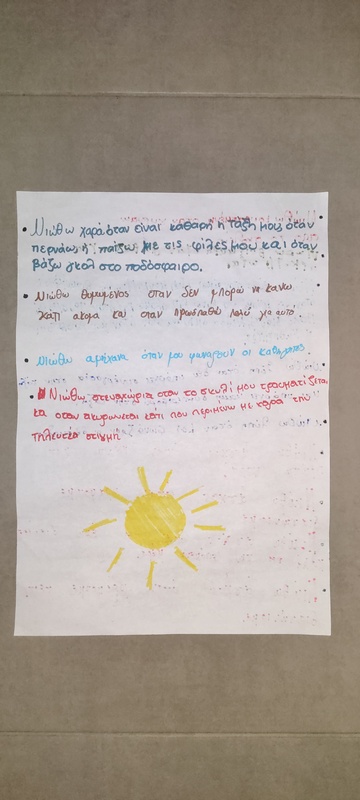 • Νιώθω χαρά όταν είναι καθαρή η τάξη μου, όταν
περνάω ή παίζω με τις φίλες μου και όταν
βάζω γκολ στο ποδόσφαιρο.
• Νιώθω θυμωμένος όταν δεν μπορώ να κανω
κάτι ακομα και όταν προσπαθώ πολύ για αυτο
• Νιώθω αμήχανα όταν μου φωναζουν οι καθηγητές
• Νιώθω στεναχώρια οταν το σκυλί μου τραυματίζεται
και οταν ακυρωνεται κάτι που περιμένω με χαρά την
τηλευτεα στιγμη